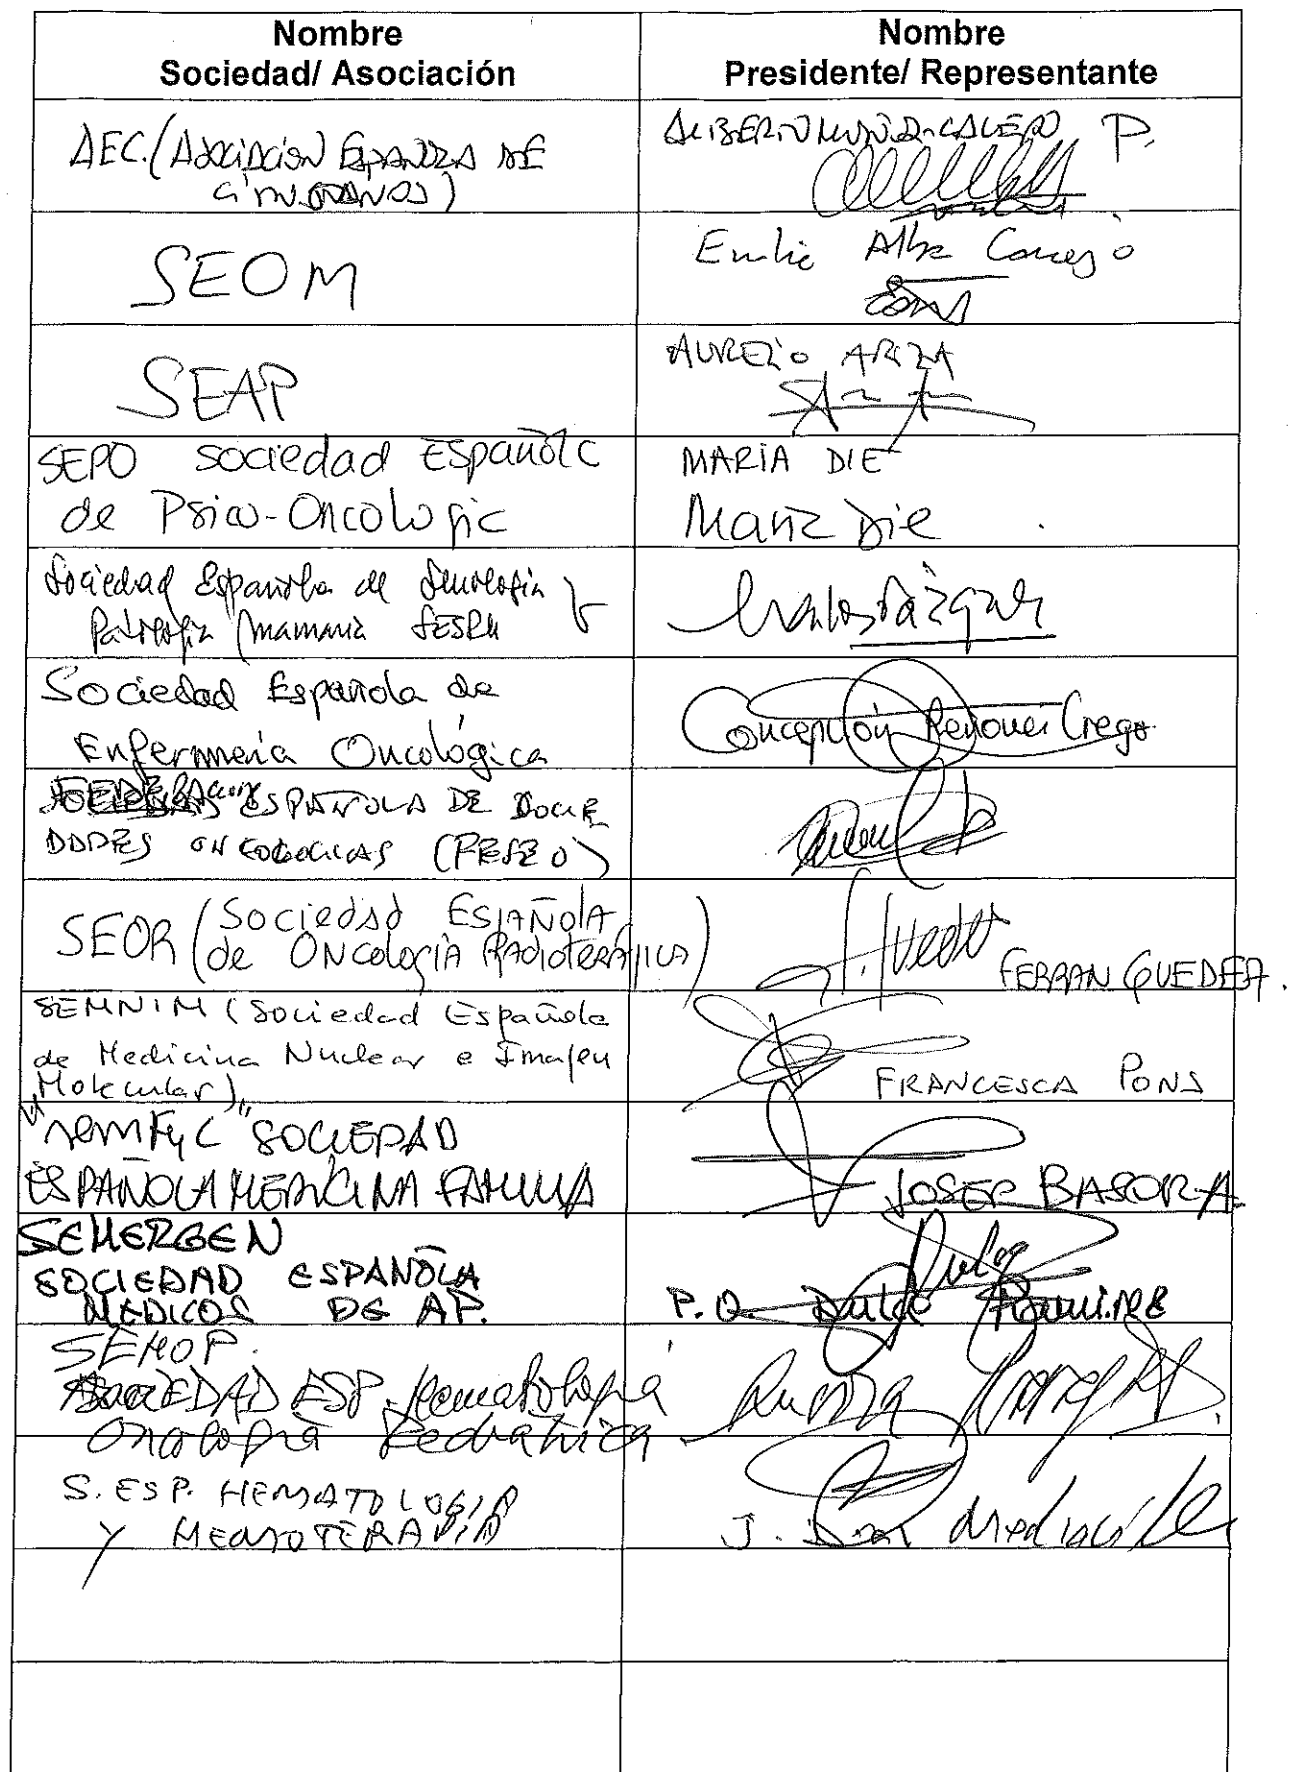 Nombre
Sociedad/ Asociación
Nombre
Presidente/ Representante
AEC. (Asociación Española de
Cirujanos)
ALBERTO MUÑOZ-CALERO P.
SEOM
Emilio Alba Conejo
SEAP
AURELIO ARIZA
SEPO Sociedad Española
de Psico-Oncología
MARIA DIE
Maria Die
Sociedad Española de Senología y
Patología Mamaria SESPM
Carlos Vázquez
Sociedad Española de
Enfermería Oncológica
Concepción Crego
FEDERACION ESPAÑOLA DE SOCIE
DADES ONCOLOGICAS (FESEO)
SEOR (Sociedad ESPAÑOLA
de ONCOLOGIA RADIOTERAPICA)
F. Guedea
FERRAN GUEDEA.
SEMNIM (Sociedad Española
de Medicina Nuclear e Imagen
Molecular)
FRANCESCA PONS
"semFyC" SOCIEDAD
ESPAÑOLA MEDICINA FAMILIA
JOSEP BASORA.
SEMERGEN
SOCIEDAD ESPAÑOLA
MEDICOS DE AP.
P.O. Ramirez
SEHOP.
SOCIEDAD ESP. Hematología
Oncología Pediátrica.
S. ESP. HEMATOLOGIA
Y HEMOTERAPIA
J.